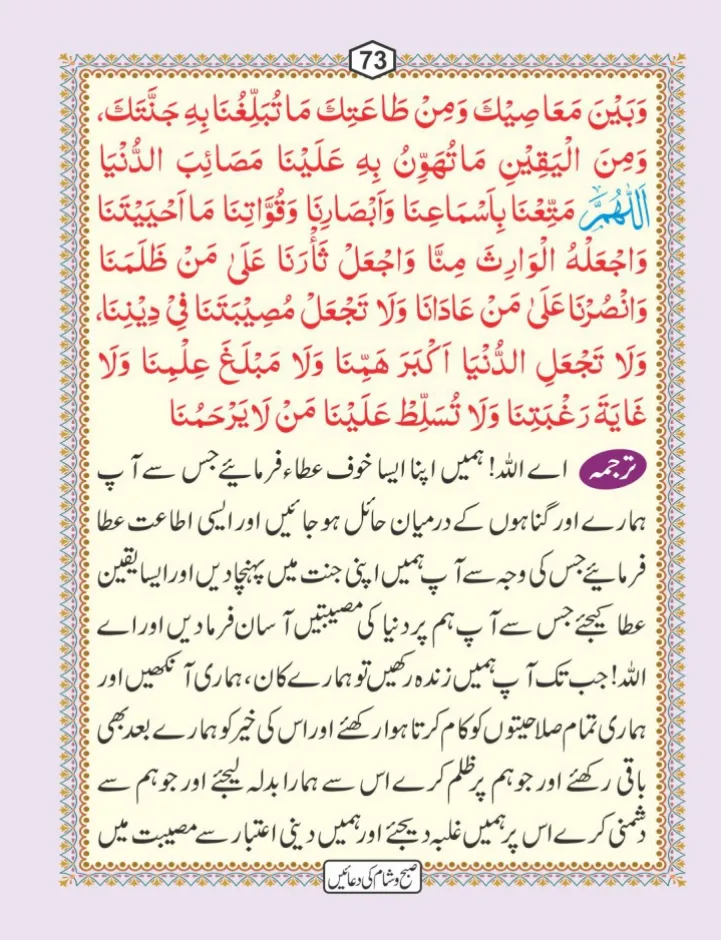 73
وَبَيْنَ مَعَاصِيْكَ وَمِنْ طَاعَتِكَ مَا تُبَلِّغُنَا بِهٖ جَنَّتَكَ،
وَمِنَ الْيَقِيْنِ مَا تُهَوِّنُ بِهٖ عَلَيْنَا مَصَائِبَ الدُّنْيَا
اَللّٰهُمَّ مَتِّعْنَا بِاَسْمَاعِنَا وَاَبْصَارِنَا وَقُوَّاتِنَا مَا اَحْيَيْتَنَا
وَاجْعَلْهُ الْوَارِثَ مِنَّا وَاجْعَلْ ثَأْرَنَا عَلَىٰ مَنْ ظَلَمَنَا
وَانْصُرْنَا عَلَىٰ مَنْ عَادَانَا وَلَا تَجْعَلْ مُصِيْبَتَنَا فِيْ دِيْنِنَا،
وَلَا تَجْعَلِ الدُّنْيَا اَكْبَرَ هَمِّنَا وَلَا مَبْلَغَ عِلْمِنَا وَلَا
غَايَةَ رَغْبَتِنَا وَلَا تُسَلِّطْ عَلَيْنَا مَنْ لَا يَرْحَمُنَا
ترجمہ اے اللہ! ہمیں اپنا ایسا خوف عطاء فرمائیے جس سے آپ
ہمارے اور گناہوں کے درمیان حائل ہوجائیں اور ایسی اطاعت عطا
فرمائیے جس کی وجہ سے آپ ہمیں اپنی جنت میں پہنچادیں اور ایسا یقین
عطا کیجئے جس سے آپ ہم پر دنیا کی مصیبتیں آسان فرمادیں اور اے
اللہ! جب تک آپ ہمیں زندہ رکھیں تو ہمارے کان، ہماری آنکھیں اور
ہماری تمام صلاحیتوں کو کام کرتا ہوا رکھئے اور اس کی خیر کو ہمارے بعد بھی
باقی رکھئے اور جو ہم پر ظلم کرے اس سے ہمارا بدلہ لیجئے اور جو ہم سے
دشمنی کرے اس پر ہمیں غلبہ دیجئے اور ہمیں دینی اعتبار سے مصیبت میں
صبح و شام کی دعائیں